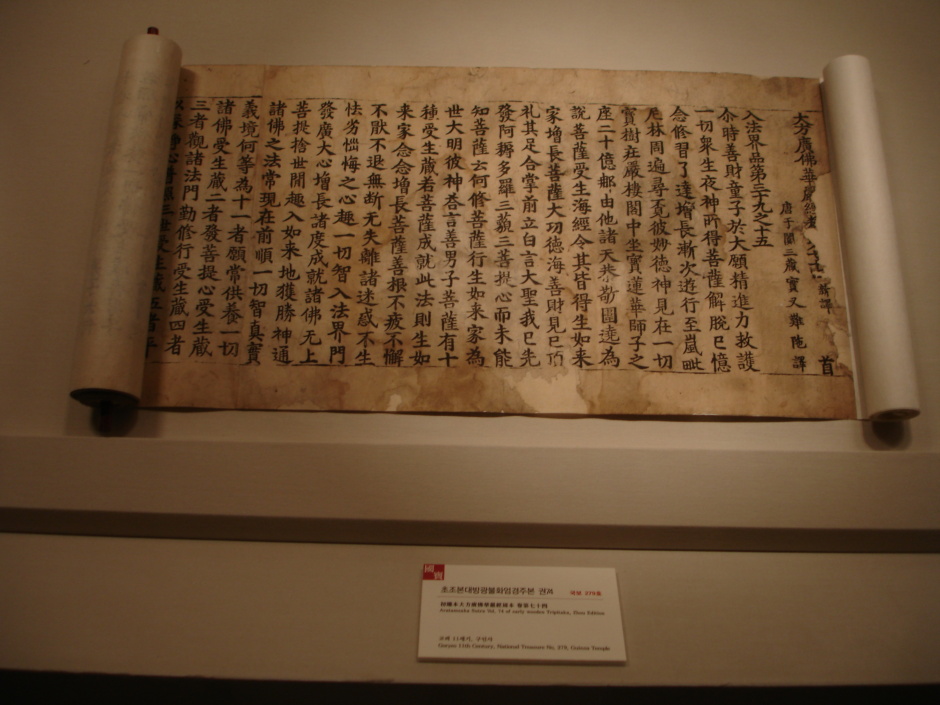 大方廣佛華嚴經 新譯 首
唐于闐三藏實叉難陁譯
入法界品第三十九之十五
尒時善財童子於大願精進力救護
一切衆生夜神所得菩薩解脫已憶
念修習了達增長漸次遊行至嵐毗
尼林周遍尋覓彼妙德神見在一切
寶樹莊嚴樓閣中坐寶蓮華師子之
座二十億那由他諸天恭敬圍遶為
說菩薩受生海經令其皆得生如来
家增長菩薩大功德海善財見已頂
礼其足合掌前立白言大聖我已先
發阿耨多羅三藐三菩提心而未能
知菩薩云何修菩薩行生如来家為
世大明彼神荅言善男子菩薩有十
種受生藏若菩薩成就此法則生如
来家念念增長菩薩善根不疲不懈
不猒不退無断无失離諸迷惑不生
怯劣惱悔之心趣一切智入法界門
發廣大心增長諸度成就諸佛无上
菩提捨世閒趣入如来地獲勝神通
諸佛之法常現在前順一切智真實
義境何等為十一者願常供養一切
諸佛受生藏二者發菩提心受生藏
三者觀諸法門勤修行受生藏四者
國寶
초조본대방광불화엄경주본 권74 국보 279호
初雕本大方廣佛華嚴經周本 卷第七十四
Avatamsaka Sutra Vol. 74 of early wooden Tripitaka, Zhou Edition
고려 11세기, 구인사
Goryeo 11th Century, National Treasure No. 279, Guinsa Temple